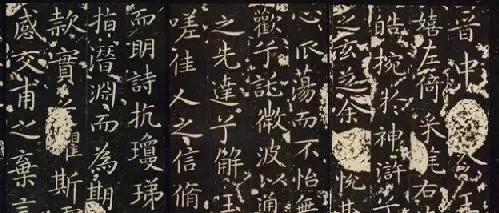 晉中令王
嬉左倚采旄右
皓捥於神滸
之玄芝余悅其
心振蕩而不怡無
歡兮託微波以通
之先達兮解玉
嗟佳人之信脩
而明詩抗瓊珶
指潛淵而為期
款實懼斯
感交甫之棄言